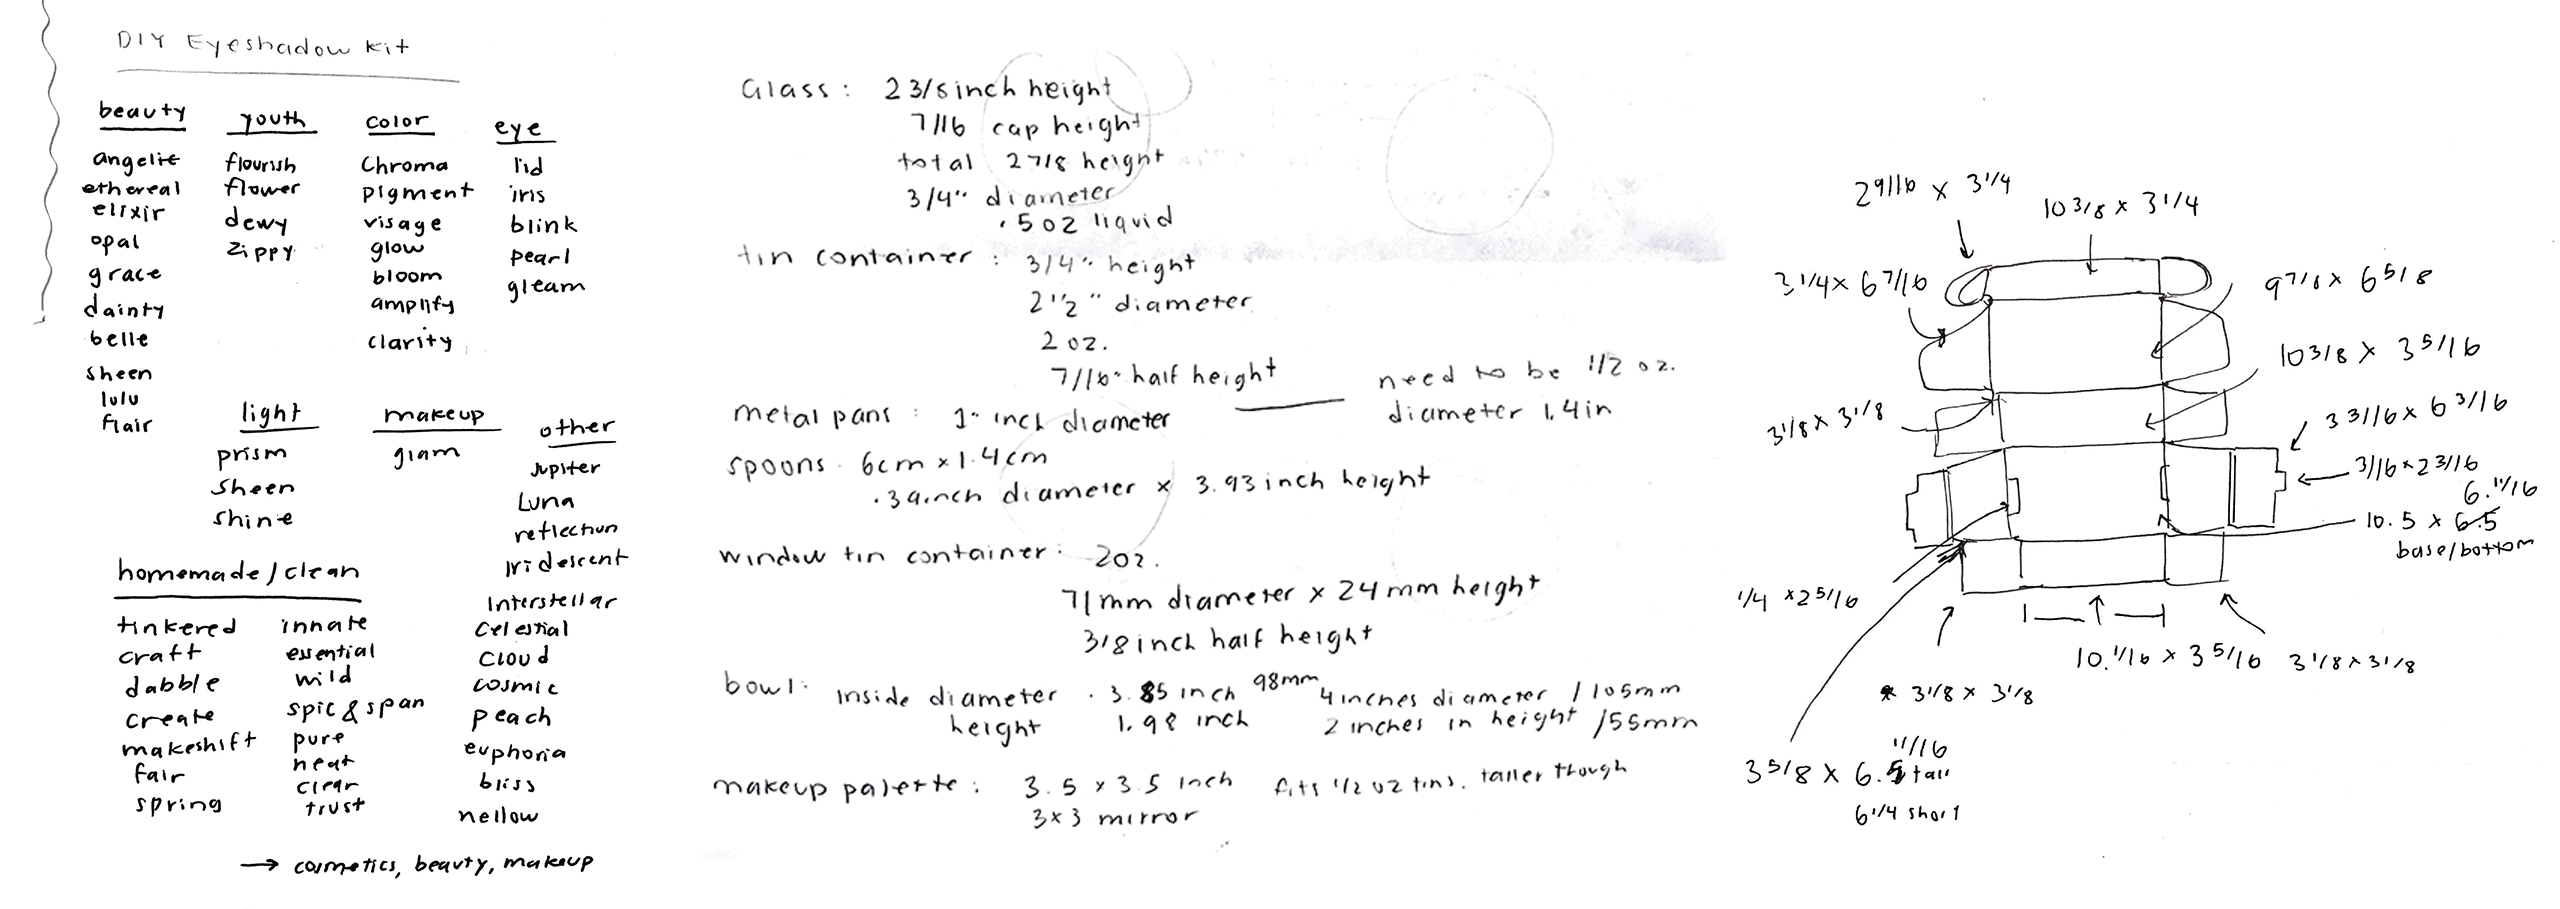 DIY Eyeshadow Kit
beauty
angelic
ethereal
elixir
opal
grace
dainty
belle
sheen
lulu
flair
youth
flourish
flower
dewy
zippy
color
Chroma
pigment
visage
glow
bloom
amplify
clarity
eye
lid
iris
blink
pearl
gleam
light
prism
Sheen
Shine
makeup
glam
other
Jupiter
Luna
reflection
Iridescent
Interstellar
Celestial
Cloud
cosmic
peach
euphoria
bliss
nellow
homemade/clean
tinkered
craft
dabble
create
makeshift
fair
spring
innate
essential
wild
spic & span
pure
neat
clear
trust
→ cosmetics, beauty, makeup
Glass: 2 3/8 inch height
7/16 cap height
total 2 7/8 height
3/4" diameter
.5 oz liquid
tin container: 3/4" height
2 1/2" diameter
2 oz.
7/16" half height
metal pans: 1" inch diameter
need to be 1/2 oz.
diameter 1.4 in
spoons. 6cm x 1.4cm
.39 inch diameter x 3.93 inch height
window tin container: 2oz.
71mm diameter x 24mm height
3/8 inch half height
bowl: inside diameter . 3.85 inch 98mm 4 inches diameter / 105mm
height 1.98 inch 2 inches in height / 55mm
makeup palette: 3.5 x 3.5 inch fits 1/2 oz tins. taller though
3x3 mirror
2 9/16 x 3 1/4
10 3/8 x 3 1/4
3 1/4 x 6 7/16
9 7/8 x 6 5/8
10 3/8 x 3 5/16
3 1/8 x 3 1/8
3 3/16 x 6 3/16
3/16 x 2 3/16
6. 11/16
10.5 x 6.5
base/bottom
1/4 x 2 5/16
10. 1/16 x 3 5/16
3 1/8 x 3 1/8
* 3 1/8 x 3 1/8
11/16
3 5/8 x 6.5 tall
6 1/4 short